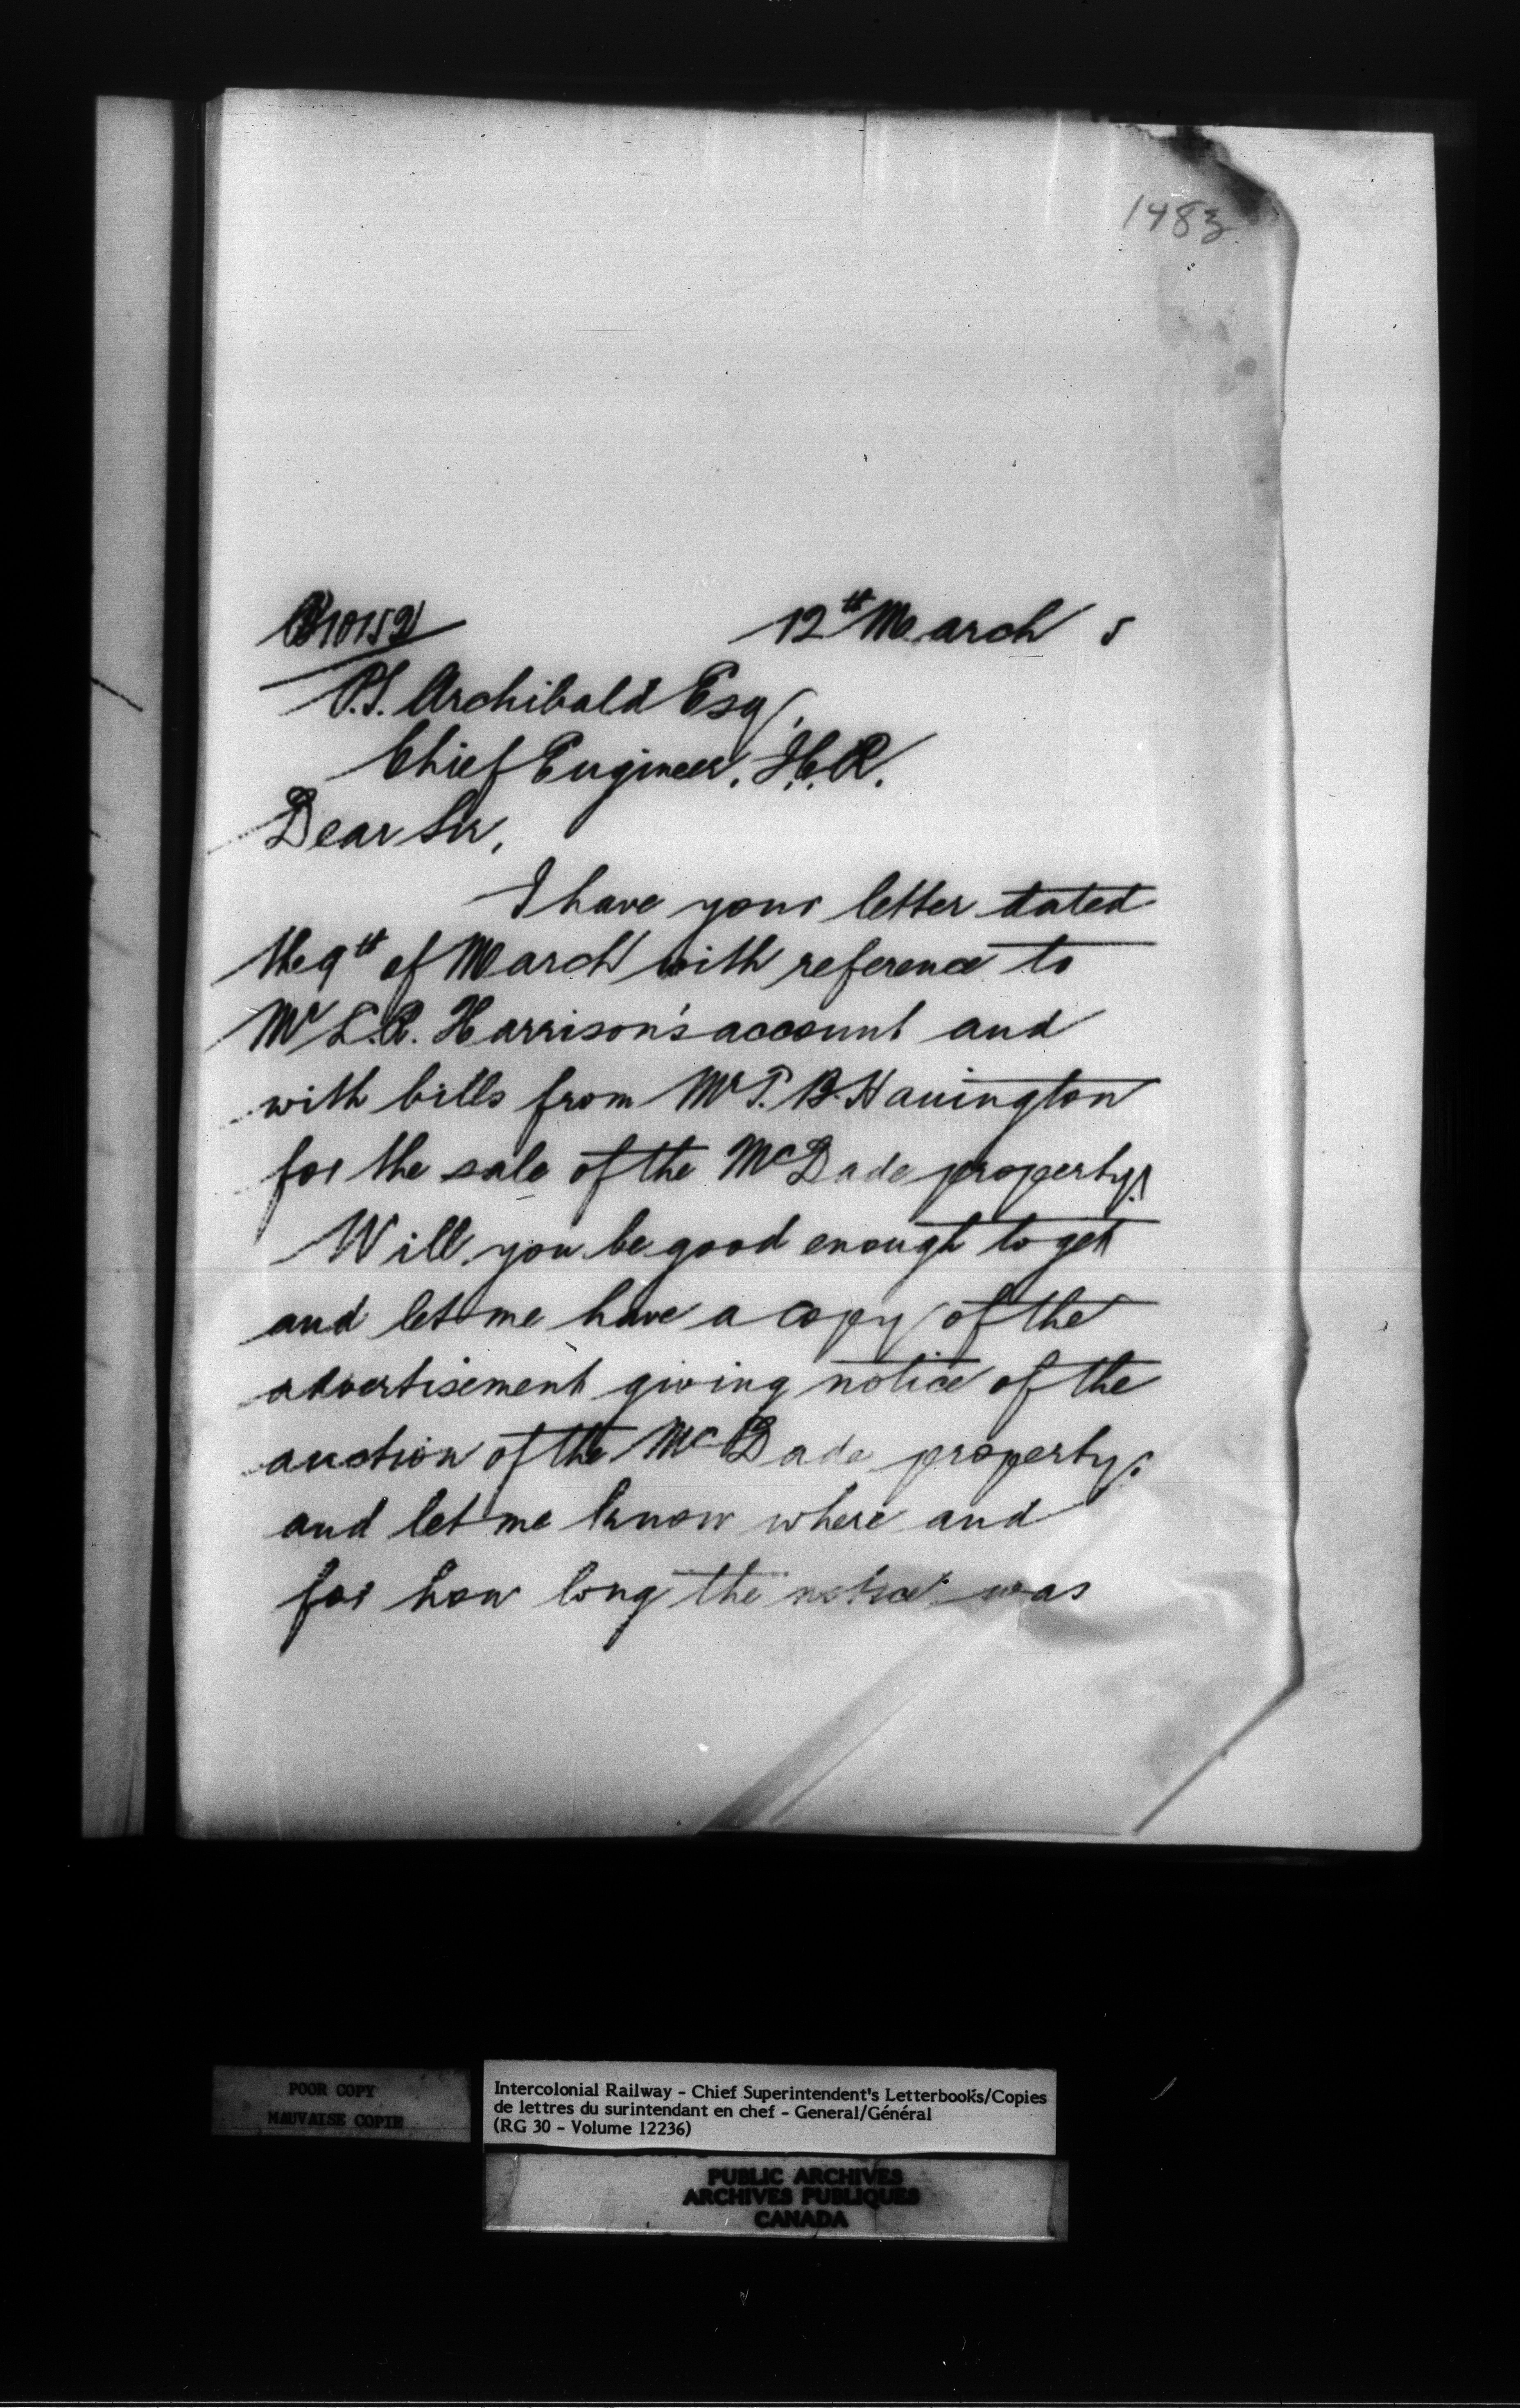 1483
12th March 5
P.S. Archibald Esq.
Chief Engineer, I.C.R.
Dear Sir,
I have your letter dated
the 9th of March with reference to
Mr L.R. Harrison's account and
with bills from Mr T.B. Hanington
for the sale of the McDade property.
Will you be good enough to get
and let me have a copy of the
advertisement giving notice of the
auction of the McDade property,
and let me know where and
for how long the notice was
POOR COPY
MAUVAISE COPIE
Intercolonial Railway - Chief Superintendent's Letterbooks/Copies
de lettres du surintendant en chef - General/Général
(RG 30 - Volume 12236)
PUBLIC ARCHIVES
ARCHIVES PUBLIQUES
CANADA